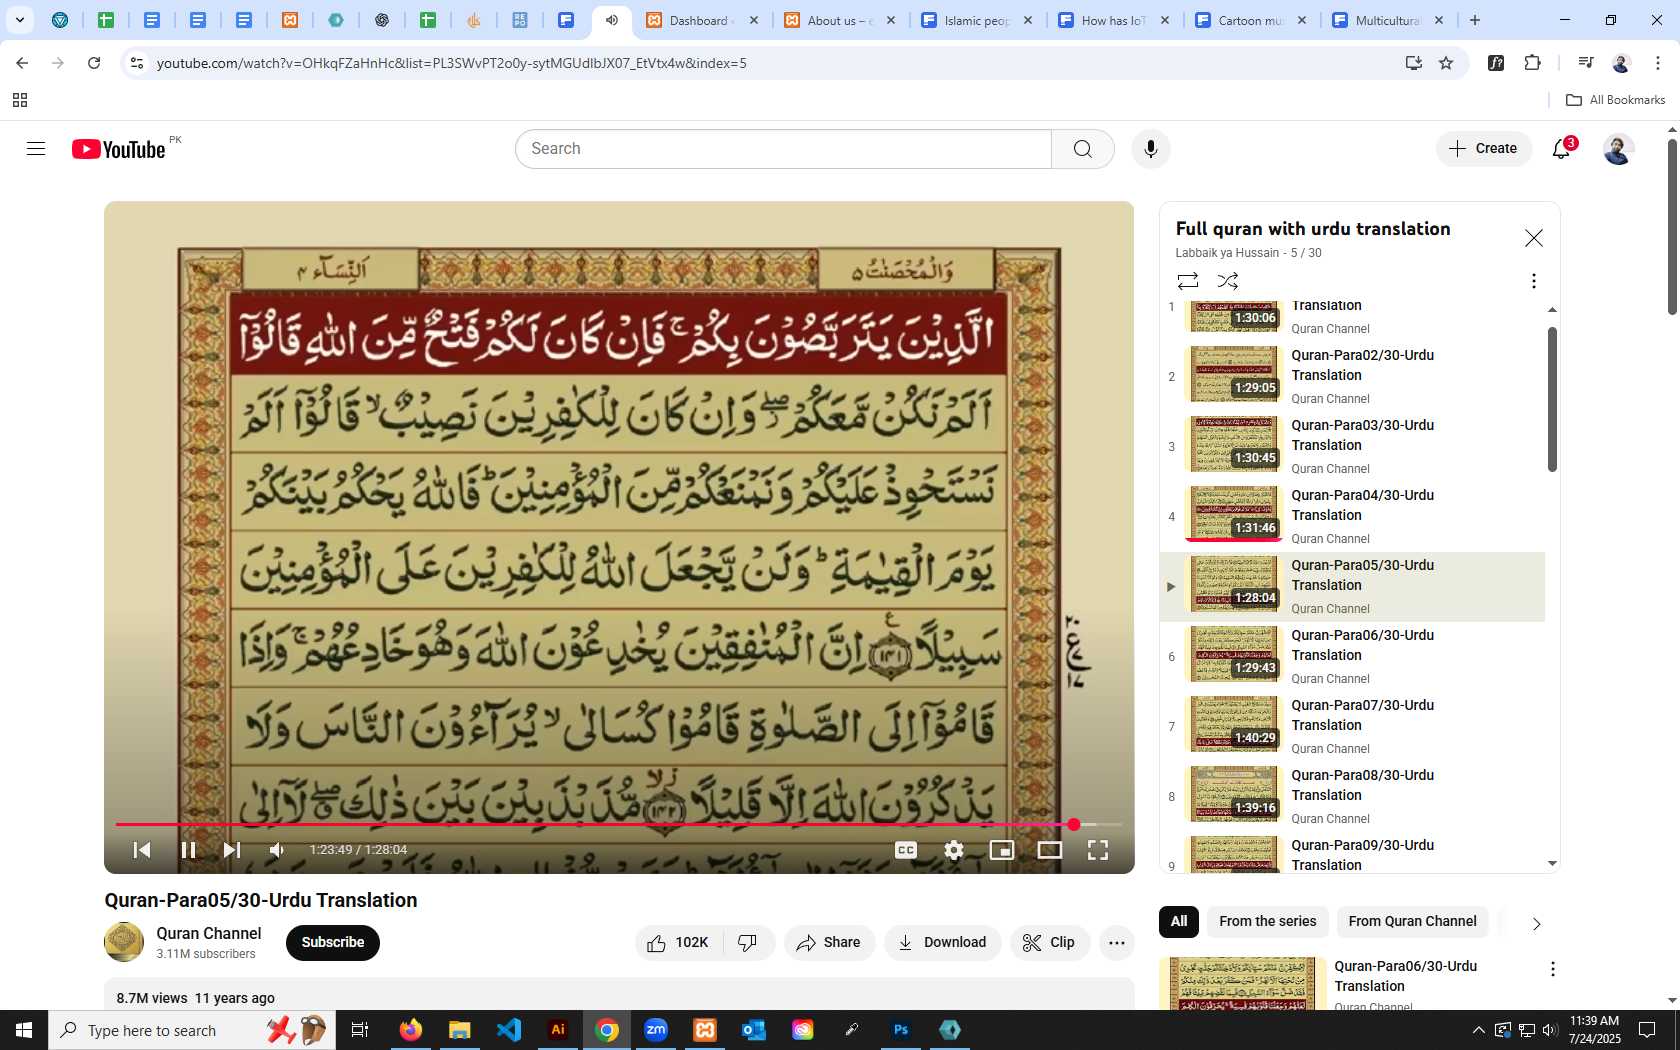 Dashboard
About us – e
Islamic peop
How has IoT
Cartoon mus
Multicultural
youtube.com/watch?v=OHkqFZaHnHc&list=PL3SWvPT2o0y-sytMGUdIbJX07_EtVtx4w&index=5
All Bookmarks
YouTube PK
Search
Create
3
اَلنِّسَآء ۴
وَالْمُحْصَنٰتُ ۵
الَّذِيْنَ يَتَرَبَّصُوْنَ بِكُمْ ۚ فَاِنْ كَانَ لَكُمْ فَتْحٌ مِّنَ اللّٰهِ قَالُوْٓا
اَلَمْ نَكُنْ مَّعَكُمْ ۖ وَاِنْ كَانَ لِلْكٰفِرِيْنَ نَصِيْبٌ ۙ قَالُوْٓا اَلَمْ
نَسْتَحْوِذْ عَلَيْكُمْ وَنَمْنَعْكُمْ مِّنَ الْمُؤْمِنِيْنَ ؕ فَاللّٰهُ يَحْكُمُ بَيْنَكُمْ
يَوْمَ الْقِيٰمَةِ ؕ وَلَنْ يَّجْعَلَ اللّٰهُ لِلْكٰفِرِيْنَ عَلَى الْمُؤْمِنِيْنَ
سَبِيْلًا ۱۴۱ ع اِنَّ الْمُنٰفِقِيْنَ يُخٰدِعُوْنَ اللّٰهَ وَهُوَ خَادِعُهُمْ ۚ وَاِذَا
قَامُوْٓا اِلَى الصَّلٰوةِ قَامُوْا كُسَالٰى ۙ يُرَآءُوْنَ النَّاسَ وَلَا
يَذْكُرُوْنَ اللّٰهَ اِلَّا قَلِيْلًا ۱۴۲ مُّذَبْذَبِيْنَ بَيْنَ ذٰلِكَ ۖ لَآ اِلٰى
1:23:49 / 1:28:04
CC
Quran-Para05/30-Urdu Translation
Quran Channel
3.11M subscribers
Subscribe
102K
Share
Download
Clip
8.7M views 11 years ago
Full quran with urdu translation
Labbaik ya Hussain - 5 / 30
1
1:30:06
Translation
Quran Channel
2
1:29:05
Quran-Para02/30-Urdu
Translation
Quran Channel
3
1:30:45
Quran-Para03/30-Urdu
Translation
Quran Channel
4
1:31:46
Quran-Para04/30-Urdu
Translation
Quran Channel
1:28:04
Quran-Para05/30-Urdu
Translation
Quran Channel
6
1:29:43
Quran-Para06/30-Urdu
Translation
Quran Channel
7
1:40:29
Quran-Para07/30-Urdu
Translation
Quran Channel
8
1:39:16
Quran-Para08/30-Urdu
Translation
Quran Channel
9
Quran-Para09/30-Urdu
Translation
All
From the series
From Quran Channel
Quran-Para06/30-Urdu
Translation
Quran Channel
Type here to search
Ai
zm
Ps
11:39 AM
7/24/2025